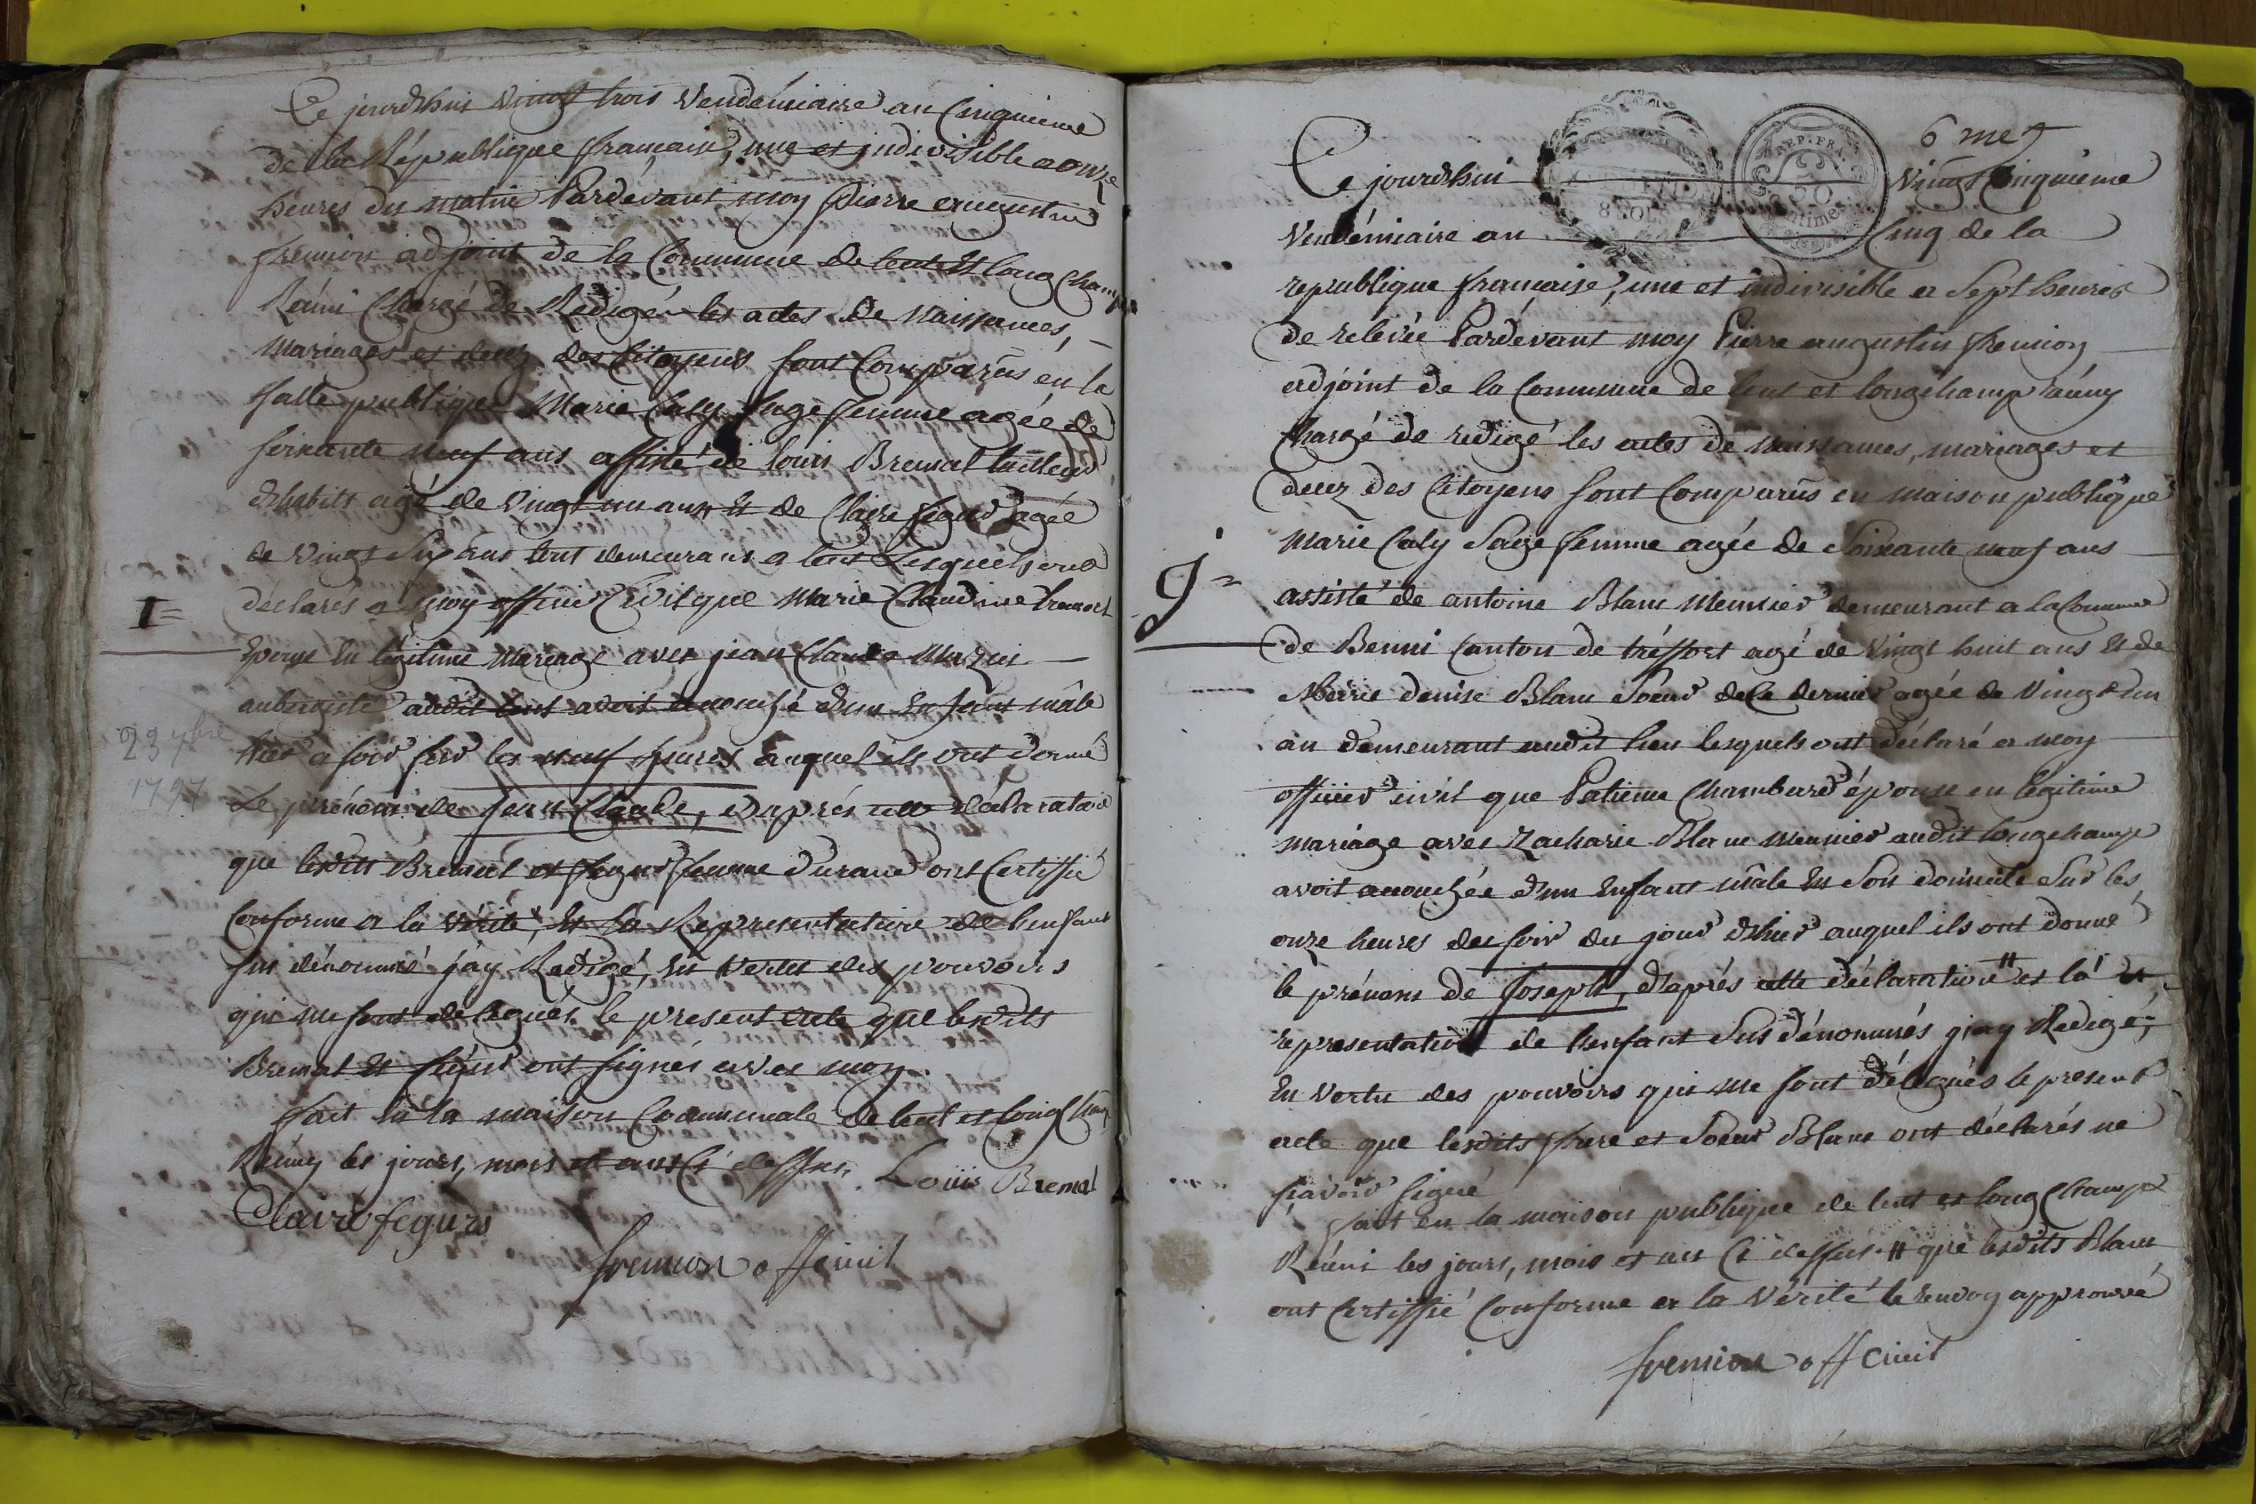 Ce jourdhui vingt trois vendémiaire an Cinquieme
de la République française, une et indivisible a onze
heures du matin Pardevant moy Pierre augustin
fremion adjoint de la Commune de lent et long Champ
Réüni Chargé de Redigé les actes de naissances,
mariages et decez des Citoyens sont Comparüs en la
salle publique Marie Caly sage femme agée de
soixante neuf ans assisté de louis Bremal tailleur
dhabits agé de vingt un ans et de Claire figur agée
de vingt six ans tout demeurans a lent Lesquels ont
déclarés a moy officier Civil que Marie Claudine
I=
Epouse en légitime mariage avec jean Claude
aubergiste audit lent avoit accouché d'un Enfant mâle
23 7bre
1797
hier a soir sur les neuf heures auquel ils ont donné
Le prénom de Jean Claude, d'aprés cette déclaration
que lesdits Bremal et figur femme durand ont Certiffié
Conforme a la vérité, et la Representation de l'enfant
sus dénommé j'ay Redigé, en vertu des pouvoirs
qui me sont delegués le present acte que lesdits
Bremal et figur ont signés avec moy.
fait en la maison Communale de lent et long Champ
Réüny les jours, mois et an Ci dessus. Louis Bremal
Claire figurs
fremion off civil
6 me
REP. FRA.
50
centimes
8 SOLS
Ce jourdhui vingt Cinquième
Vendémiaire an Cinq de la
republique française, une et indivisible a sept heures
de relevée Pardevant moy Pierre augustin fremion
adjoint de la Commune de lent et longchamp réüny
Chargé de redigé les actes de naissances, mariages et
decez des Citoyens sont Comparüs en maison publique
Marie Caly Sage femme agée de Soixante neuf ans
assisté de antoine Blanc Meunier demeurant a la Commune
de Benni Canton de tréffort agé de vingt huit ans et de
Marie denise Blanc Soeur de Ce dernier agée de vingt un
an demeurant audit lieu lesquels ont déclaré a moy
officier civil que Patienne Chambard épouse en légitime
mariage avec Zacharie Blanc meunier audit longchamp
avoit accouchée d'un Enfant mâle en Son domicile Sur les
onze heures du soir du jour d'hier auquel ils ont donné
le prénom de Joseph, d'aprés cette déclaration # et la
representation de l'enfant Sus dénommés j'ay Redigé,
En vertu des pouvoirs qui me sont délegués le present
acte que lesdits frere et Soeur Blanc ont déclarés ne
sçavoir signé
fait en la maison publique de lent et long Champ
Réüni les jours, mois et an Ci dessus. # que lesdits Blanc
ont Certiffié Conforme a la Vérité le renvoy approuvé
fremion off civil